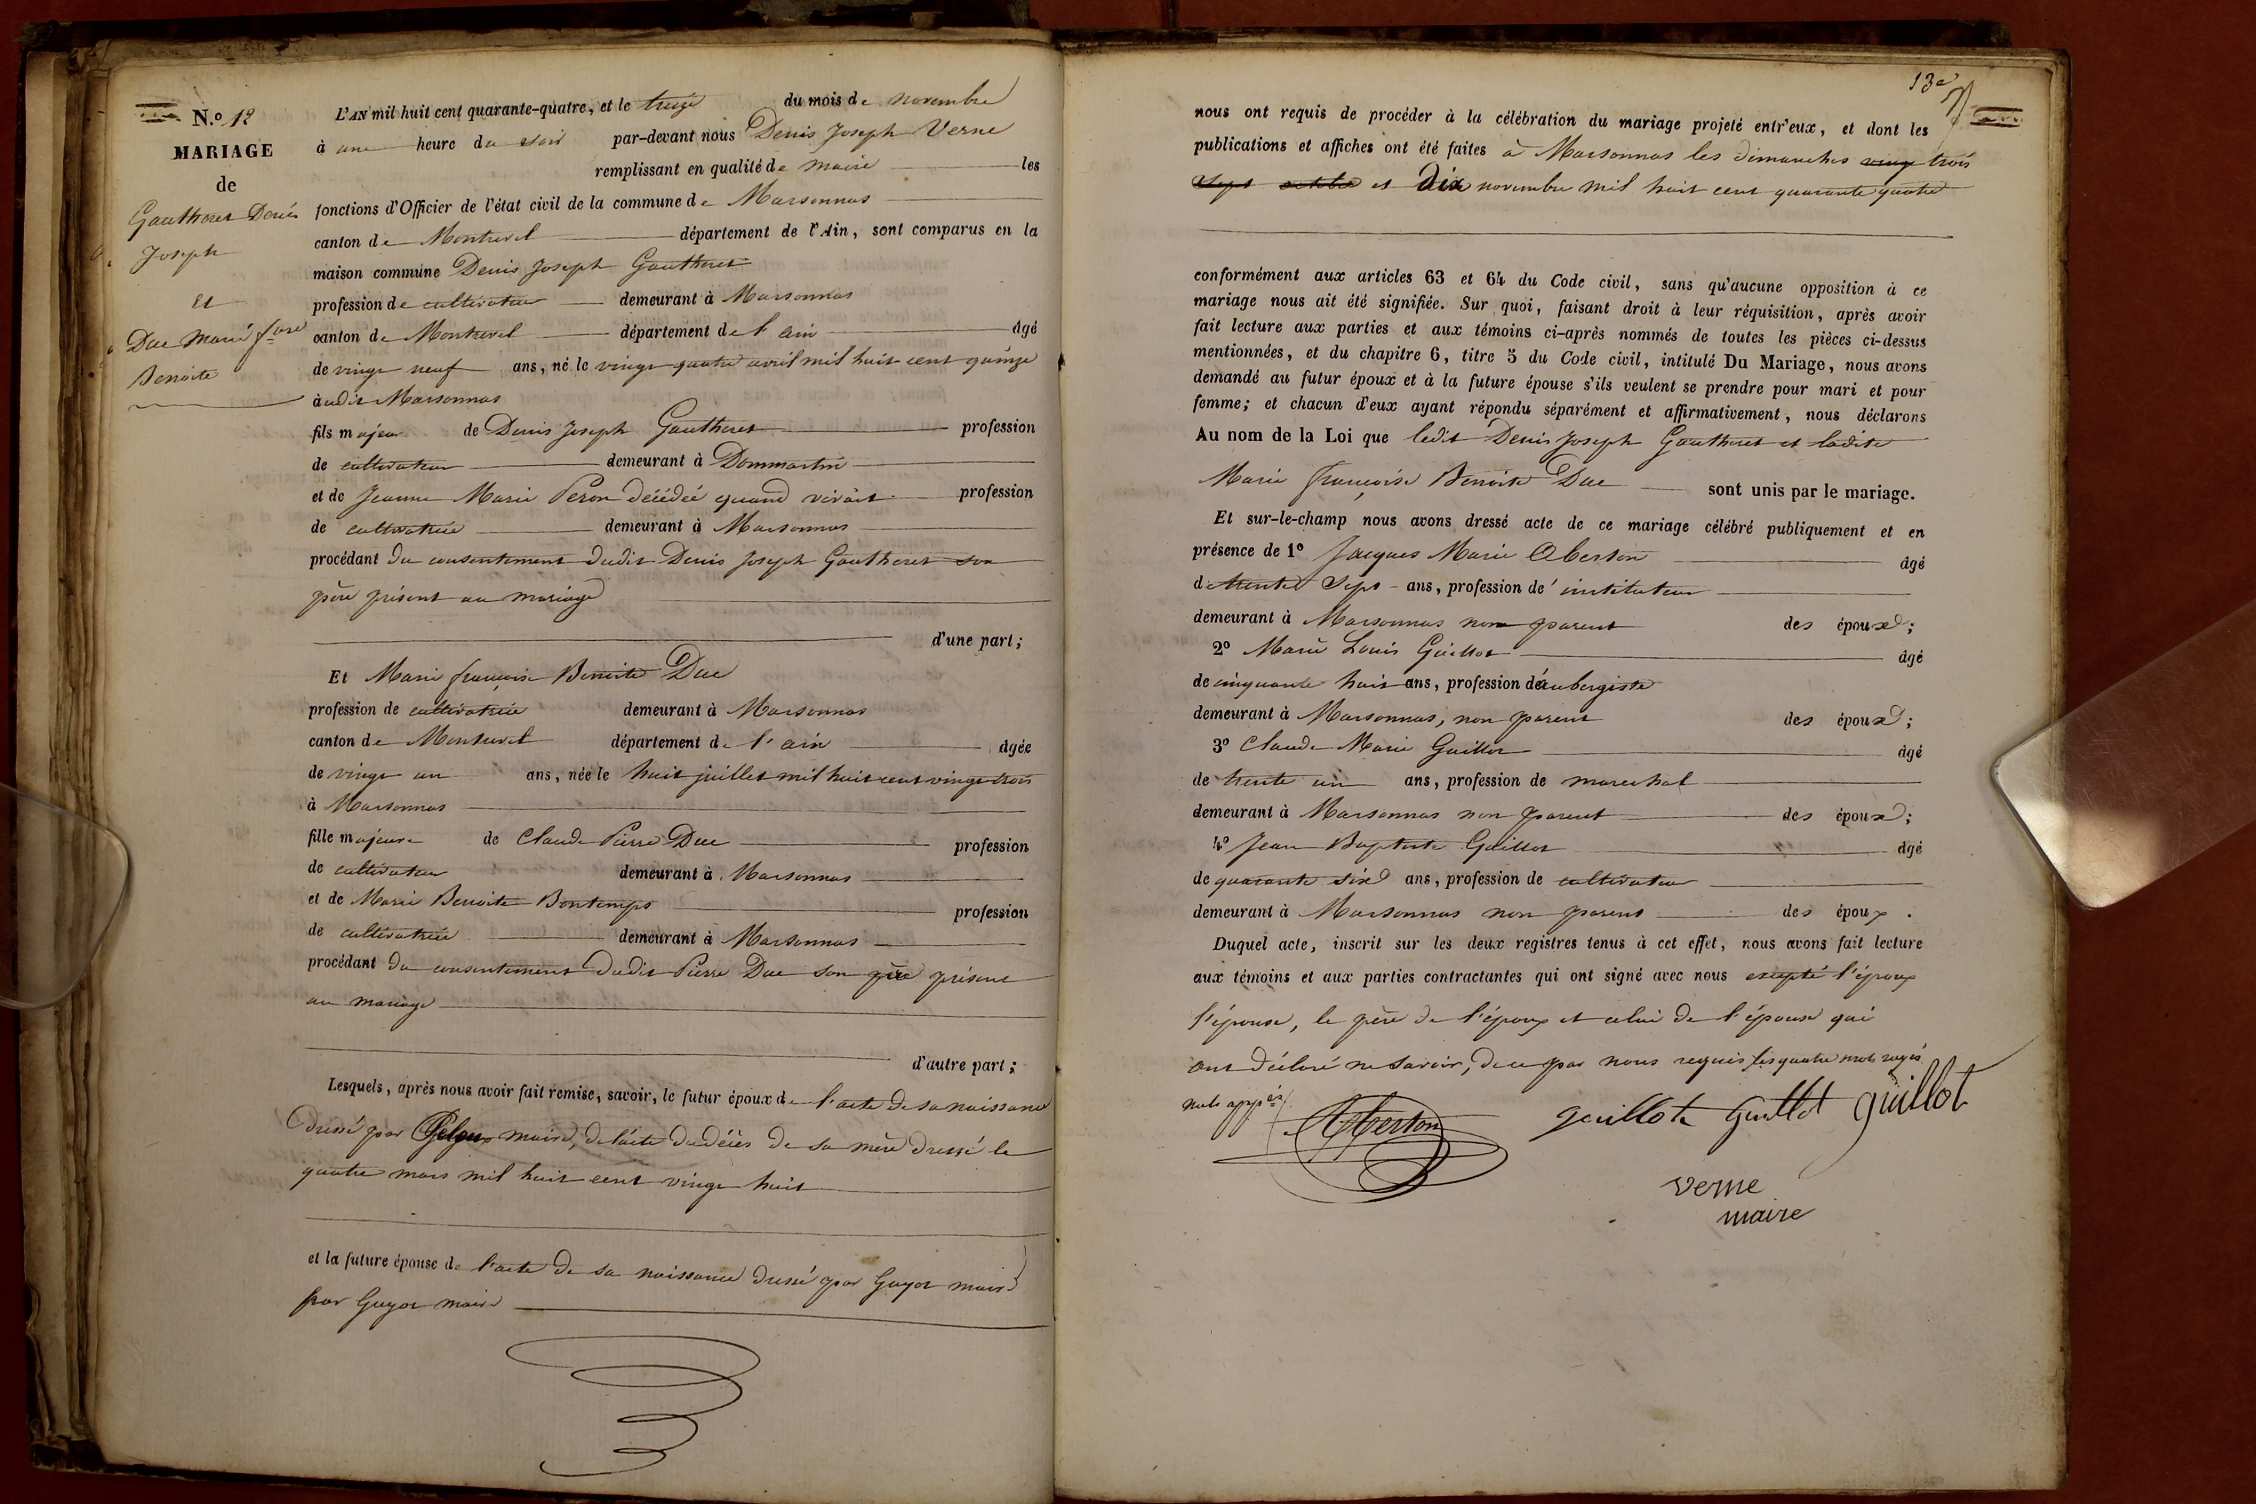 N.o 12
MARIAGE
de
Gautheret Denis
Joseph
et
Duc Marie fçoise
Benoite
L'AN mil huit cent quarante-quatre, et le treize du mois de novembre
à une heure du soir par-devant nous Denis Joseph Verne
remplissant en qualité de maire les
fonctions d'Officier de l'état civil de la commune de Marsonnas
canton de Montrevel département de l'Ain, sont comparus en la
maison commune Denis Joseph Gautheret
profession de cultivateur demeurant à Marsonnas
canton de Montrevel département de l'ain âgé
de vingt neuf ans, né le vingt quatre avril mil huit cent quinze
àudit Marsonnas
fils majeur de Denis Joseph Gautheret profession
de cultivateur demeurant à Dommartin
et de Jeanne Marie Peron décédée quand vivait profession
de cultivatrice demeurant à Marsonnas
procédant du consentement dudit Denis Joseph Gautheret son
père présent au mariage
d'une part;
Et Marie françoise Benoite Duc
profession de cultivatrice demeurant à Marsonnas
canton de Montrevel département de l'ain âgée
de vingt un ans, née le huit juillet mil huit cent vingt trois
à Marsonnas
fille majeure de Claude Pierre Duc profession
de cultivateur demeurant à Marsonnas
et de Marie Benoite Bontemps profession
de cultivatrice demeurant à Marsonnas
procédant du consentement dudit Pierre Duc son père présent
au mariage
d'autre part;
Lesquels, après nous avoir fait remise, savoir, le futur époux de l'acte de sa naissance
dressé par maire, de l'acte de décès de sa mère dressé le
quatre mars mil huit cent vingt huit
et la future épouse de l'acte de sa naissance dressé par Guyot maire
par Guyot maire
13e
nous ont requis de procéder à la célébration du mariage projeté entr'eux, et dont les
publications et affiches ont été faites à Marsonnas les dimanches vingt trois
sept octobre et Dix novembre mil huit cent quarante quatre
conformément aux articles 63 et 64 du Code civil, sans qu'aucune opposition à ce
mariage nous ait été signifiée. Sur quoi, faisant droit à leur réquisition, après avoir
fait lecture aux parties et aux témoins ci-après nommés de toutes les pièces ci-dessus
mentionnées, et du chapitre 6, titre 5 du Code civil, intitulé Du Mariage, nous avons
demandé au futur époux et à la future épouse s'ils veulent se prendre pour mari et pour
femme; et chacun d'eux ayant répondu séparément et affirmativement, nous déclarons
Au nom de la Loi que ledit Denis Joseph Gautheret et ladite
Marie françoise Benoite Duc sont unis par le mariage.
Et sur-le-champ nous avons dressé acte de ce mariage célébré publiquement et en
présence de 1o Jacques Marie Oberton âgé
de trente sept ans, profession de instituteur
demeurant à Marsonnas non parent des époux;
2o Marie Louis Guillot âgé
de cinquante huit ans, profession d'aubergiste
demeurant à Marsonnas, non parent des époux;
3o Claude Marie Guillot âgé
de trente un ans, profession de marechal
demeurant à Marsonnas non parent des époux;
4o Jean Baptiste Guillot âgé
de quarante six ans, profession de cultivateur
demeurant à Marsonnas non parent des époux.
Duquel acte, inscrit sur les deux registres tenus à cet effet, nous avons fait lecture
aux témoins et aux parties contractantes qui ont signé avec nous excepté l'époux
l'épouse, le père de l'époux et celui de l'épouse qui
ont déclaré ne savoir, de ce par nous requis, les quatre mots rayés
nuls
Oberton guillot Guillot guillot
verne
maire